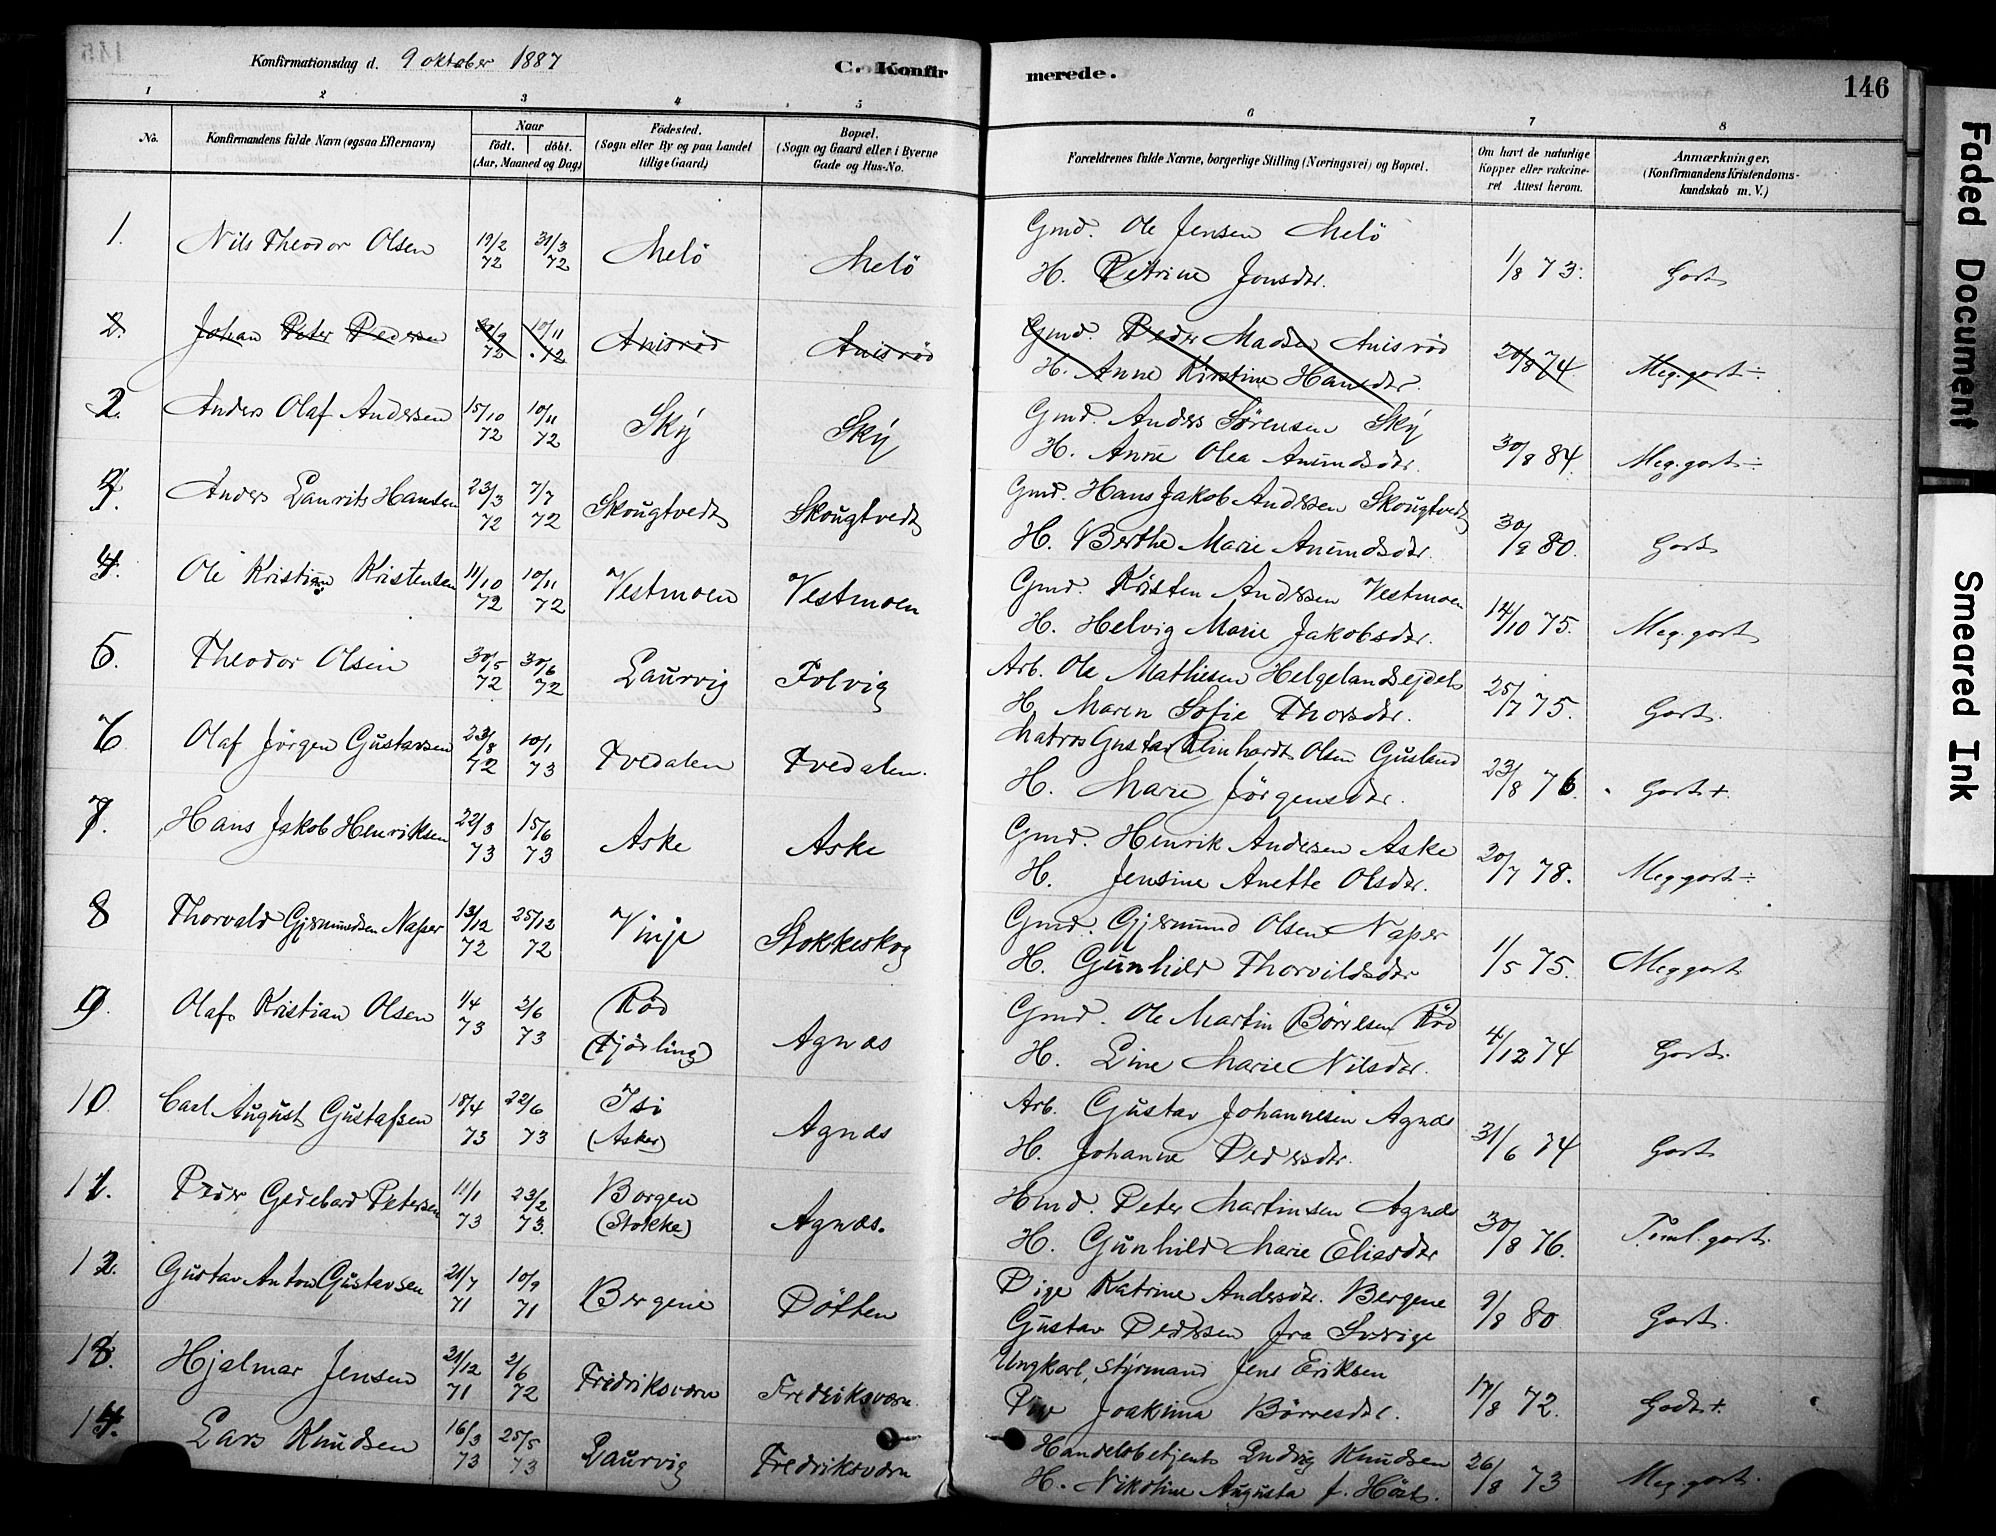 145
Konfirmationsdag d. 9 oktober 1887
C. Konfir
merede.
146
1 2 3 4 5 6 7 8
No.
Konfirmandens fulde Navn (ogsaa Efternavn)
Naar
født. døbt.
(Aar, Maaned og Dag)
Fødested.
(Sogn eller By og paa Landet
tillige Gaard)
Bopæl.
(Sogn og Gaard eller i Byerne
Gade og Hus-No.
Forældrenes fulde Navne, borgerlige Stilling (Næringsvei) og Bopæl.
Om havt de naturlige
Kopper eller vakcine-
ret Attest herom.
Anmærkninger,
(Konfirmandens Kristendoms-
kundskab m. V.)
1. Nils Theodor Olsen 19/2 72 31/3 72 Melö Melö Gmd. Ole Jensen Melö
H. Petrine Jonsdtr. 1/8 73. Godt
2. Johan Peter Pedersen 72 10/11 72 Anisrød Anisrød Gmd. Peder Madsen Anisrød
H. Anne Kirstine Hansdtr. 20/8 74 Meg. godt ÷
2. Anders Olaf Andersen 15/10 72 10/11 72 Sky Sky Gmd. Anders Sørensen Sky
H. Anne Olea Anundsdtr. 30/8 84. Meg. godt ÷
Anders Laurits Hansen 23/3 72 7/7 72 Skougtvedt Skougtvedt Gmd. Hans Jakob Andersen Skougtvedt
H. Berthe Marie Anundsdtr. 30/9 80. Godt
4. Ole Kristian Kristensen 11/10 72 10/11 72 Vestmoen Vestmoen Gmd. Kristen Andersen Vestmoen
H. Helvig Marie Jakobsdtr. 14/10 75. Meg. godt
5. Theodor Olsen 30/5 72 30/6 72 Laurvig Folvig Arb. Ole Mathisen Helgelandsejdet
H. Maren Sofie Thorsdtr. 25/7 75. Godt.
6 Olaf Jørgen Gustavsen 23/8 72 10/1 73 Tvedalen Tvedalen. Matros Gustav Reinhardt Olsen Gusland
H. Marie Jørgensdtr. 23/8 76. Godt +.
7. Hans Jakob Henriksen 22/3 73 15/6 73 Aske Aske Gmd. Henrik Andersen Aske
H. Jensine Anette Olsdtr. 20/7 78. Meg godt ÷
8 Thorvald Gjermundsen Naper 13/12 72 25/12 72 Vinje Stokkeskog Gmd. Gjermund Olsen Naper
H. Gunhild Thorvildsdtr 1/5 75. Meg godt
9. Olaf Kristian Olsen 1/4 73 2/6 73 Rød
(Tjølling) Agnæs Gmd. Ole Martin Børresen Rød
H. Line Marie Nilsdtr. 4/12 74 Godt.
10 Carl August Gustafsen 18/4 73 22/6 73
(Asker) Agnæs Arb. Gustav Johannesen Agnæs
H. Johanne Pedersdtr. 31/6 74 Godt
11. Peder Gedebard Petersen 11/1 73 23/2 73. Borgen
(Stokke) Agnæs. Hmd. Peter Martinsen Agnæs
H. Gunhild Marie Eliasdtr 30/8 76. Teml. godt.
12. Gustav Anton Gustavsen 21/7 71 10/9 71 Bergene Pötten Pige Katrine Andersdtr. Bergene
Gustav Pedersen fra Sverige 9/8 80 Godt.
13. Hjalmar Jensen 21/12 71 2/6 72 Fredriksværn Fredriksværn. Ungkarl, styrmand Jens Eriksen
Joakima Børresdtr. 17/8 72. Godt +.
14. Lars Knudsen 16/3 73 25/5 73 Laurvig Fredriksværn Handelsbetjent Ludvig Knudsen
H. Nikoline Augusta f. Höst. 26/8 73 Meg. godt.
Faded Document
Smeared Ink